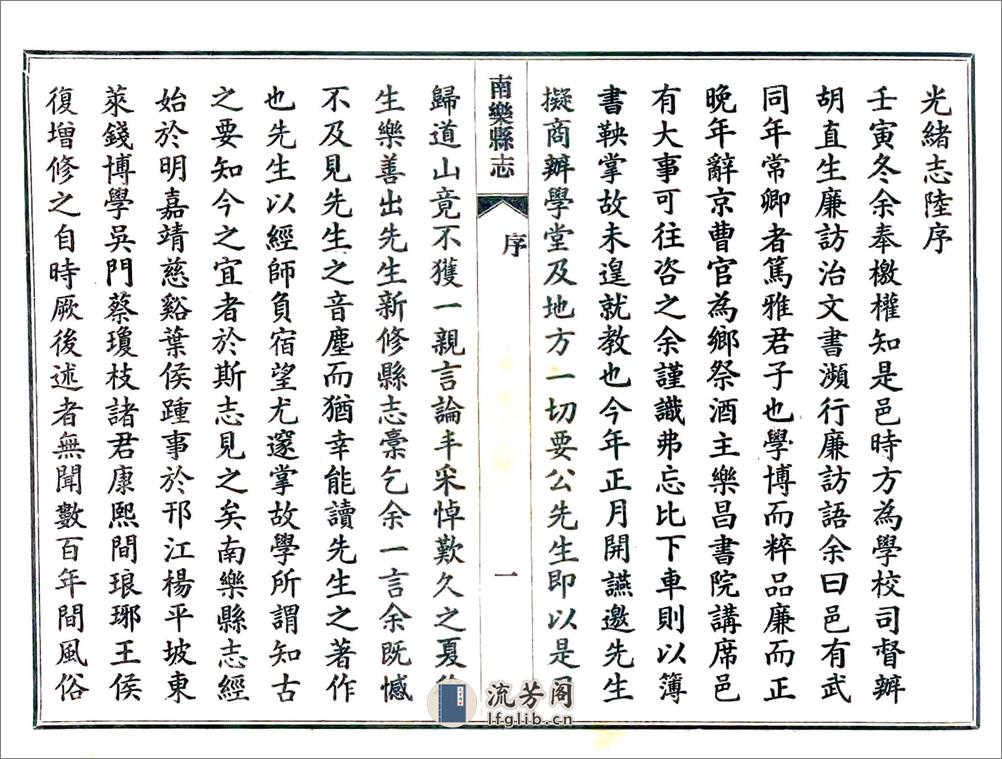 光緒志陸序
壬寅冬余奉檄權知是邑時方為學校司督辦
胡直生廉訪治文書瀕行廉訪語余曰邑有武
同年常卿者篤雅君子也學博而粹品廉而正
晚年辭京曹官為鄉祭酒主樂昌書院講席邑
有大事可往咨之余謹識弗忘比下車則以簿
書鞅掌故未遑就教也今年正月開讌邀先生
擬商辦學堂及地方一切要公先生即以是
南樂縣志
序
一
歸道山竟不獲一親言論丰采悼歎久之夏
生樂善出先生新修縣志稾乞余一言余既憾
不及見先生之音塵而猶幸能讀先生之著作
也先生以經師負宿望尤邃掌故學所謂知古
之要知今之宜者於斯志見之矣南樂縣志經
始於明嘉靖慈谿葉侯踵事於邗江楊平坡東
萊錢博學吳門蔡瓊枝諸君康熙間琅琊王侯
復增修之自時厥後述者無聞數百年間風俗
流芳阁
lfglib.cn